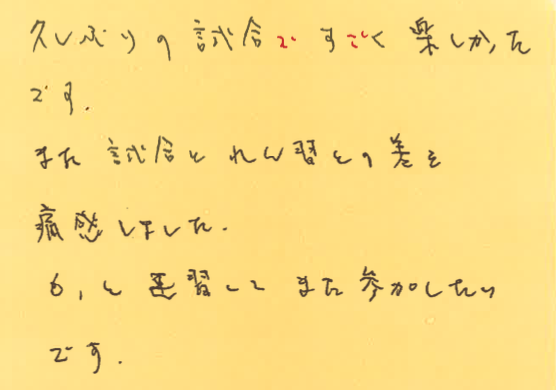 久しぶりの試合ですごく楽しかった
です.
また試合とれん習との差を
痛感しました.
もっと練習してまた参加したい
です.